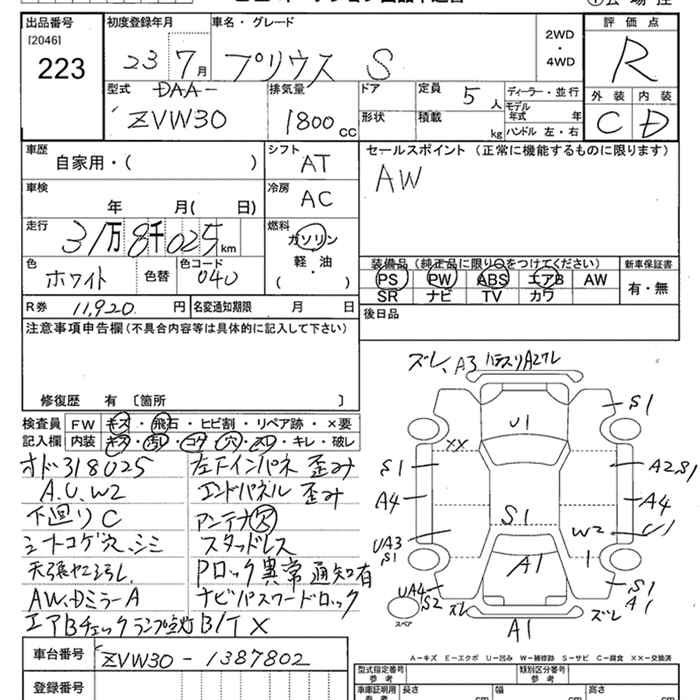 出品番号 初度登録年月 車名・グレード 評価点
[2046] 2WD
223 23 7月 プリウス S ・ R
4WD
型式 DAA- 排気量 ドア 定員 5人 ディーラー・並行 外装 内装
ZVW30 1800cc 形状 積載 kg モデル年式 年 C D
ハンドル 左・右
車歴 自家用・( ) シフト AT セールスポイント (正常に機能するものに限ります)
車検 年 月( 日) 冷房 AC AW
走行 31万8千025km 燃料 ガソリン
軽・油
( )
色 ホワイト 色替 色コード 040
装備品 (純正品に限り○をつけてください) 新車保証書
PS PW ABS エアB AW 有・無
SR ナビ TV カワ
R券 11,920円 名変通知期限 月 日 後日品
注意事項申告欄 (不具合内容等は具体的に記入して下さい)
修復歴 有 [箇所 ]
検査員 FW キズ・飛石・ヒビ割・リペア跡・×要
記入欄 内装 キズ・汚レ・コゲ・穴・スレ・キレ・破レ
オド318025 左下インパネ 歪み
A.U.W2 エンドパネル 歪み
下回りC アンテナ欠
シートコゲ穴、シミ スタッドレス
Pロック異常通知有
AW、DミラーA ナビパスワードロック
エアBチェックランプ空灯 B/T X
車台番号 ZVW30-1387802
登録番号
ズレ、A3
U1
XX
S1 S1
A2S1
A4 A4
S1 W2 U1
UA3
S1
A1
UA4 S1
S2 ズレ A1
スペア ズレ
A1
A-キズ E-エクボ U-凹み W-補修跡 S-サビ C-腐食 ××-交換済
型式指定番号 参考 類別区分番号 参考
車庫証明用 参考 長さ cm 幅 cm 高さ cm